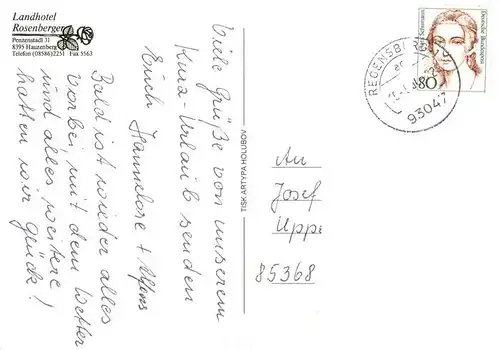 Landhotel
Rosenberger
Penzenstadl 31
8395 Hauzenberg
Telefon (08586)2251 Fax 5563
Viele Grüße von unserem
Kurz-Urlaub senden
Euch Hannelore + Alfons
Bald ist wieder alles
vorbei, mit dem Wetter
und alles weitere
hatten wir glück!
TISK ARTYPA HOLUBOV
An
Josef
Uppe
85368
REGENSBURG
93047
Deutsche Bundespost
80